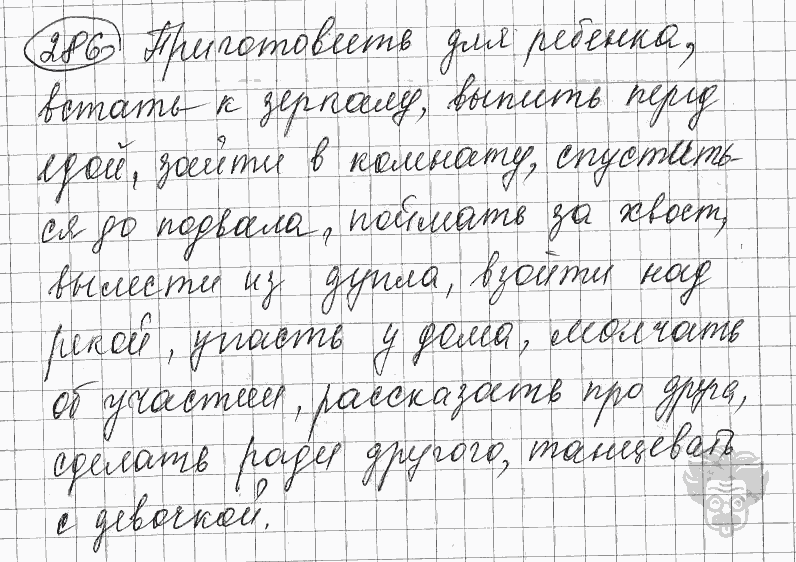 286 Приготовить для ребенка,
встать к зеркалу, выпить перед
едой, зайти в комнату, спустить-
ся до подвала, поймать за хвост,
вылезти из дупла, взойти над
рекой, упасть у дома, молчать
об участии, рассказать про друга,
сделать ради другого, танцевать
с девочкой.